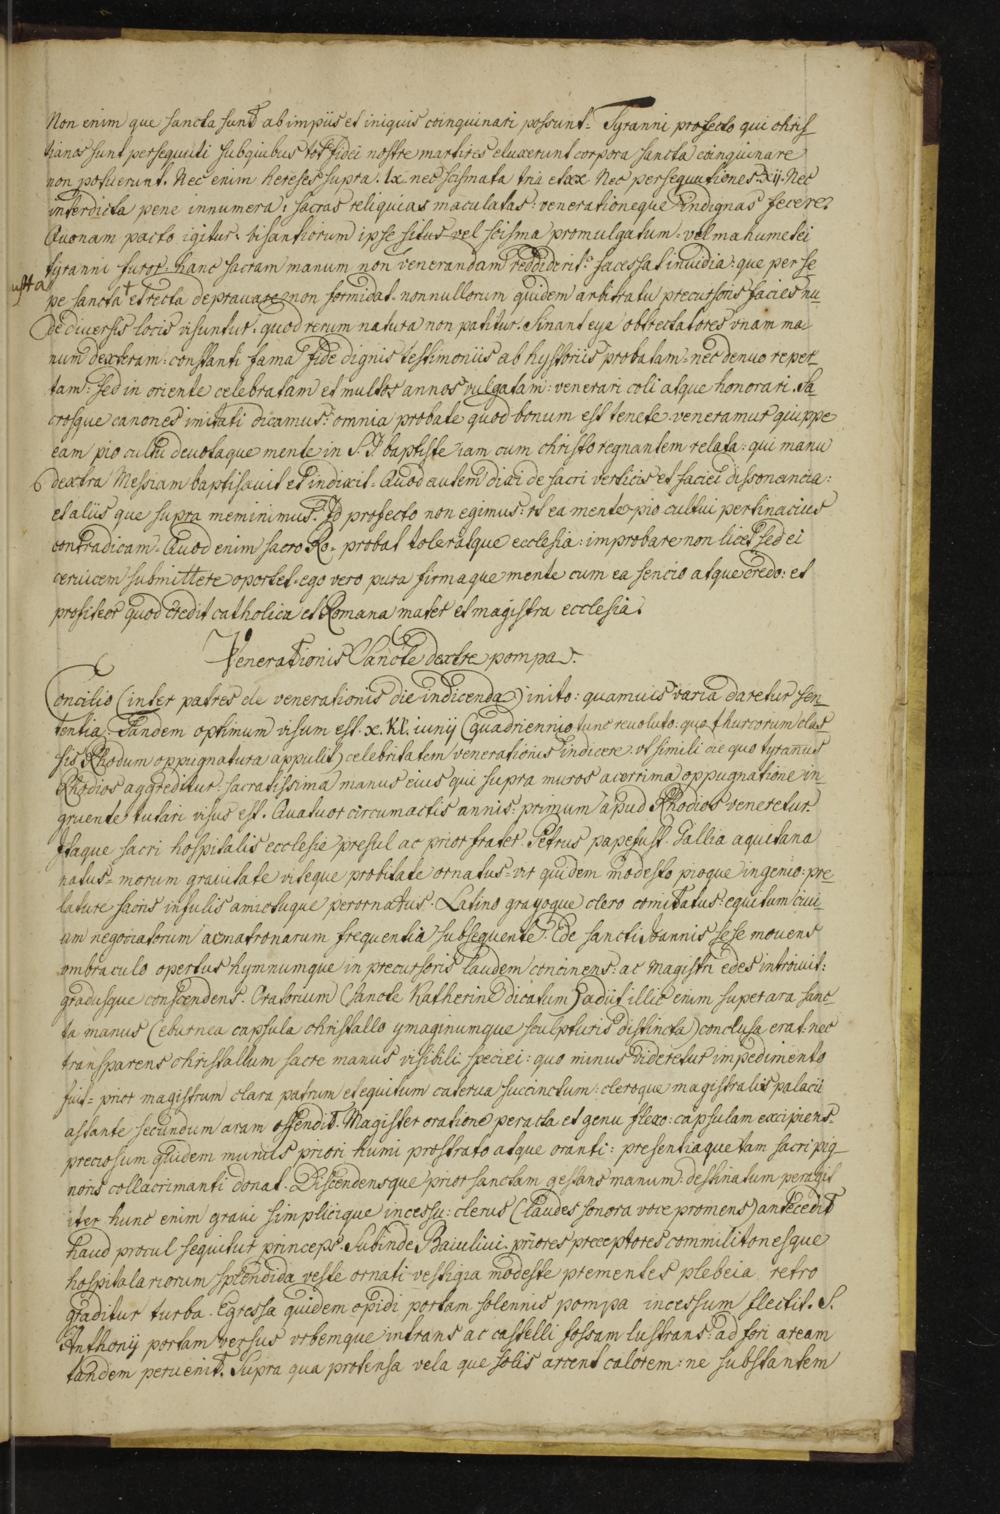 Non enim que sancta sunt ab impiis et iniquis coinquinari possunt. Tyranni profecto qui chris
tianos sunt persequuti sub quibus tot fidei nostre martires eluxerunt corpora sancta coinquinare
non potuerunt. Nec enim hereses supra. lx. nec scismata tria et xx. Nec persequutiones xij. Nec
interdicta pene innumera: sacras reliquias maculatas: venerationeque indignas fecere?
Quonam pacto igitur. bisantiorum ipse situs vel scisma promulgatum. vel mahumetei
tyranni furor. hanc sacram manum non venerandam reddiderit? facessat invidia: que per se
iusta
pe sancta + et recta depravare non formidat. nonnullorum quidem arbitratu precursoris facies nu
de diversis locis visuntur. quod rerum natura non patitur. Sinant eya obtrectatores unam ma
num dexteram: constanti fama fide dignis testimoniis ab hystoriis probatam: nec denuo reper
tam: sed in oriente celebratam et multos annos vulgatam: venerari coli atque honorari. Sa
crosque canones imitati dicamus: omnia probate quod bonum est tenete. veneramur quippe
eam pio cultu devotaque mente in S. Jo baptiste iam cum christo regnantem relata: qui manu
dextra Messiam baptisavit et indixit. Quod autem dixi de sacri verticis et faciei dissonancia:
et aliis que supra meminimus. Id profecto non egimus: vt ea mente pio cultui pertinacius
contradicam. Quod enim sacro Ro. probat toleratque ecclesia: improbare non licet sed ei
cervicem submittere oportet. ego vero pura firmaque mente cum ea sencio atque credo: et
profiteor quod credit catholica et Romana mater et magistra ecclesia.
Venerationis Sancte dextre pompa.
Concilio (inter patres de venerationis die indicenda) inito: quamuis varia daretur sen
tentia. Tandem optimum visum est. x. Kl. iunij (quadriennio tunc revoluto: quo thurcorum clas
sis Rhodum oppugnatura appulit) celebritatem venerationis indicere. vt simili die quo tyrannus
Rhodios aggreditur: sacratissima manus eius qui supra muros acerrima oppugnatione in
gruente tutari visus est. Quatuor circumactis annis: primum apud Rhodios veneretur.
Itaque sacri hospitalis ecclesie presul ac prior frater Petrus papefust. Gallia aquitana
natus. morum gravitate viteque probitate ornatus. vir quidem modesto pioque ingenio: pre
lature sacris infulis amictuque perornatus. Latino grayoque clero comitatus: equitum civi
um negociatorum ac matronarum frequentia subsequente. Ede sancti Joannis sese movens
ombraculo opertus hymnumque in precursoris laudem concinens: ac Magistri edes introivit:
gradusque conscendens. Oratorium (Sancte Katherine dicatum) adiit. illic enim super ara sanc
ta manus (eburnea capsula christallo ymaginumque sculpturis distincta) conclusa erat. nec
transparens christallum sacre manus visibili speciei: quo minus videretur impedimento
fuit. prior magistrum clara patrum et equitum caterva succinctum: cleroque magistralis palacii
astante secundum aram offendit. Magister oratione peracta et genu flexo: capsulam excipiens.
preciosum quidem munus priori humi prostrato atque oranti: presentiaque tam sacri pig
noris collacrimanti donat. Discendensque prior sanctam gestans manum: destinatum peragit
iter hunc enim gravi simplicique incessu: clerus (laudes sonora voce promens) antecedit
haud procul sequitur princeps. Subinde Baiulivi. priores preceptores commilitonesque
hospitalariorum splendida veste ornati vestigia modeste prementes plebeia retro
graditur turba. Egressa quidem opidi portam solennis pompa incessum flectit. S.
Anthonij portam versus vrbemque intrans ac castelli fossam lustrans: ad fori aream
tandem pervenit. Supra qua protensa vela que solis arcent calorem: ne substantem